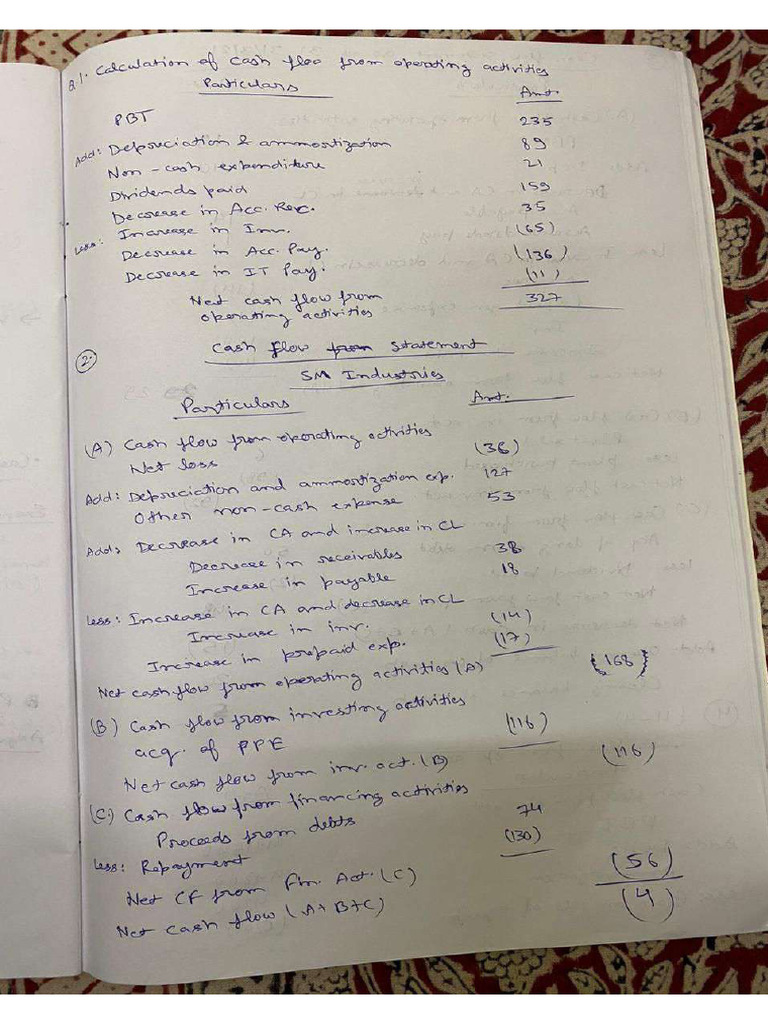 Q.1. Calculation of Cash floo from operating activities
Particulars Amt.
PBT 235
Add: Depreciation & ammortization 89
Non-cash expenditure 21
Dividends paid 159
Decrease in Acc. Rec. 35
Less: Increase in Inv. (65)
Decrease in Acc. Pay. (136)
Decrease in IT Pay. (11)
Net cash flow from 327
operating activities
2. Cash flow from Statement
SM Industries
Particulars Amt.
(A) Cash flow from operating activities
Net loss (36)
Add: Depreciation and ammortization exp. 127
Other non-cash expense 53
Add: Decrease in CA and increase in CL
Decrease in receivables 38
Increase in payable 18
Less: Increase in CA and decrease in CL
Increase in inv. (14)
Increase in prepaid exp. (17)
Net cash flow from operating activities (A) {168}
(B) Cash flow from investing activities
acq. of PPE (116)
Net cash flow from inv. act. (B) (116)
(C.) Cash flow from financing activities
Proceeds from debts 74
Less: Repayment (130)
Net CF from Fin. Act. (C) (56)
Net cash flow (A+B+C) (4)